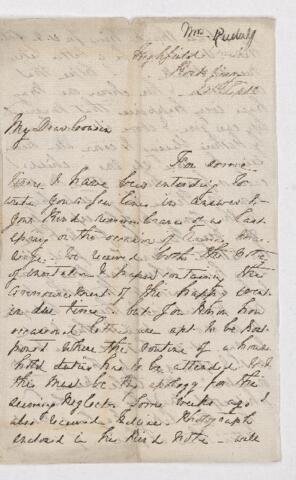 Mrs Rudall
Highfield
Rock Ferry
20th Sept
My Dear Cousin
For some
time I have been intending to
write you a few lines in answer to
your kind remembrance of us last
spring on the occasion of
We received both the note
of invitation & paper containing the
announcement of the happy event
in due time - but you know how
occasional letters are apt to be post
poned where the routine of a house
hold duties has to be attended to &
this must be the apology for the
seeming neglect some weeks ago I
also received Photograph
enclosed in her kind note - will